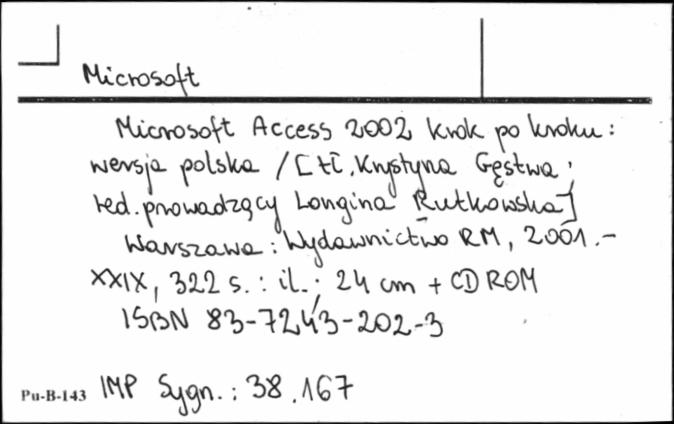 Microsoft
Microsoft Access 2002 krok po kroku :
wersja polska / [tł. Krystyna Gęstwa,
red. prowadzący Longina Rutkowska]
Warszawa : Wydawnictwo RM, 2001.-
XXIX, 322 s. : il. ; 24 cm + CD ROM
ISBN 83-7243-202-3
Pu-B-143 IMP Sygn. : 38.167